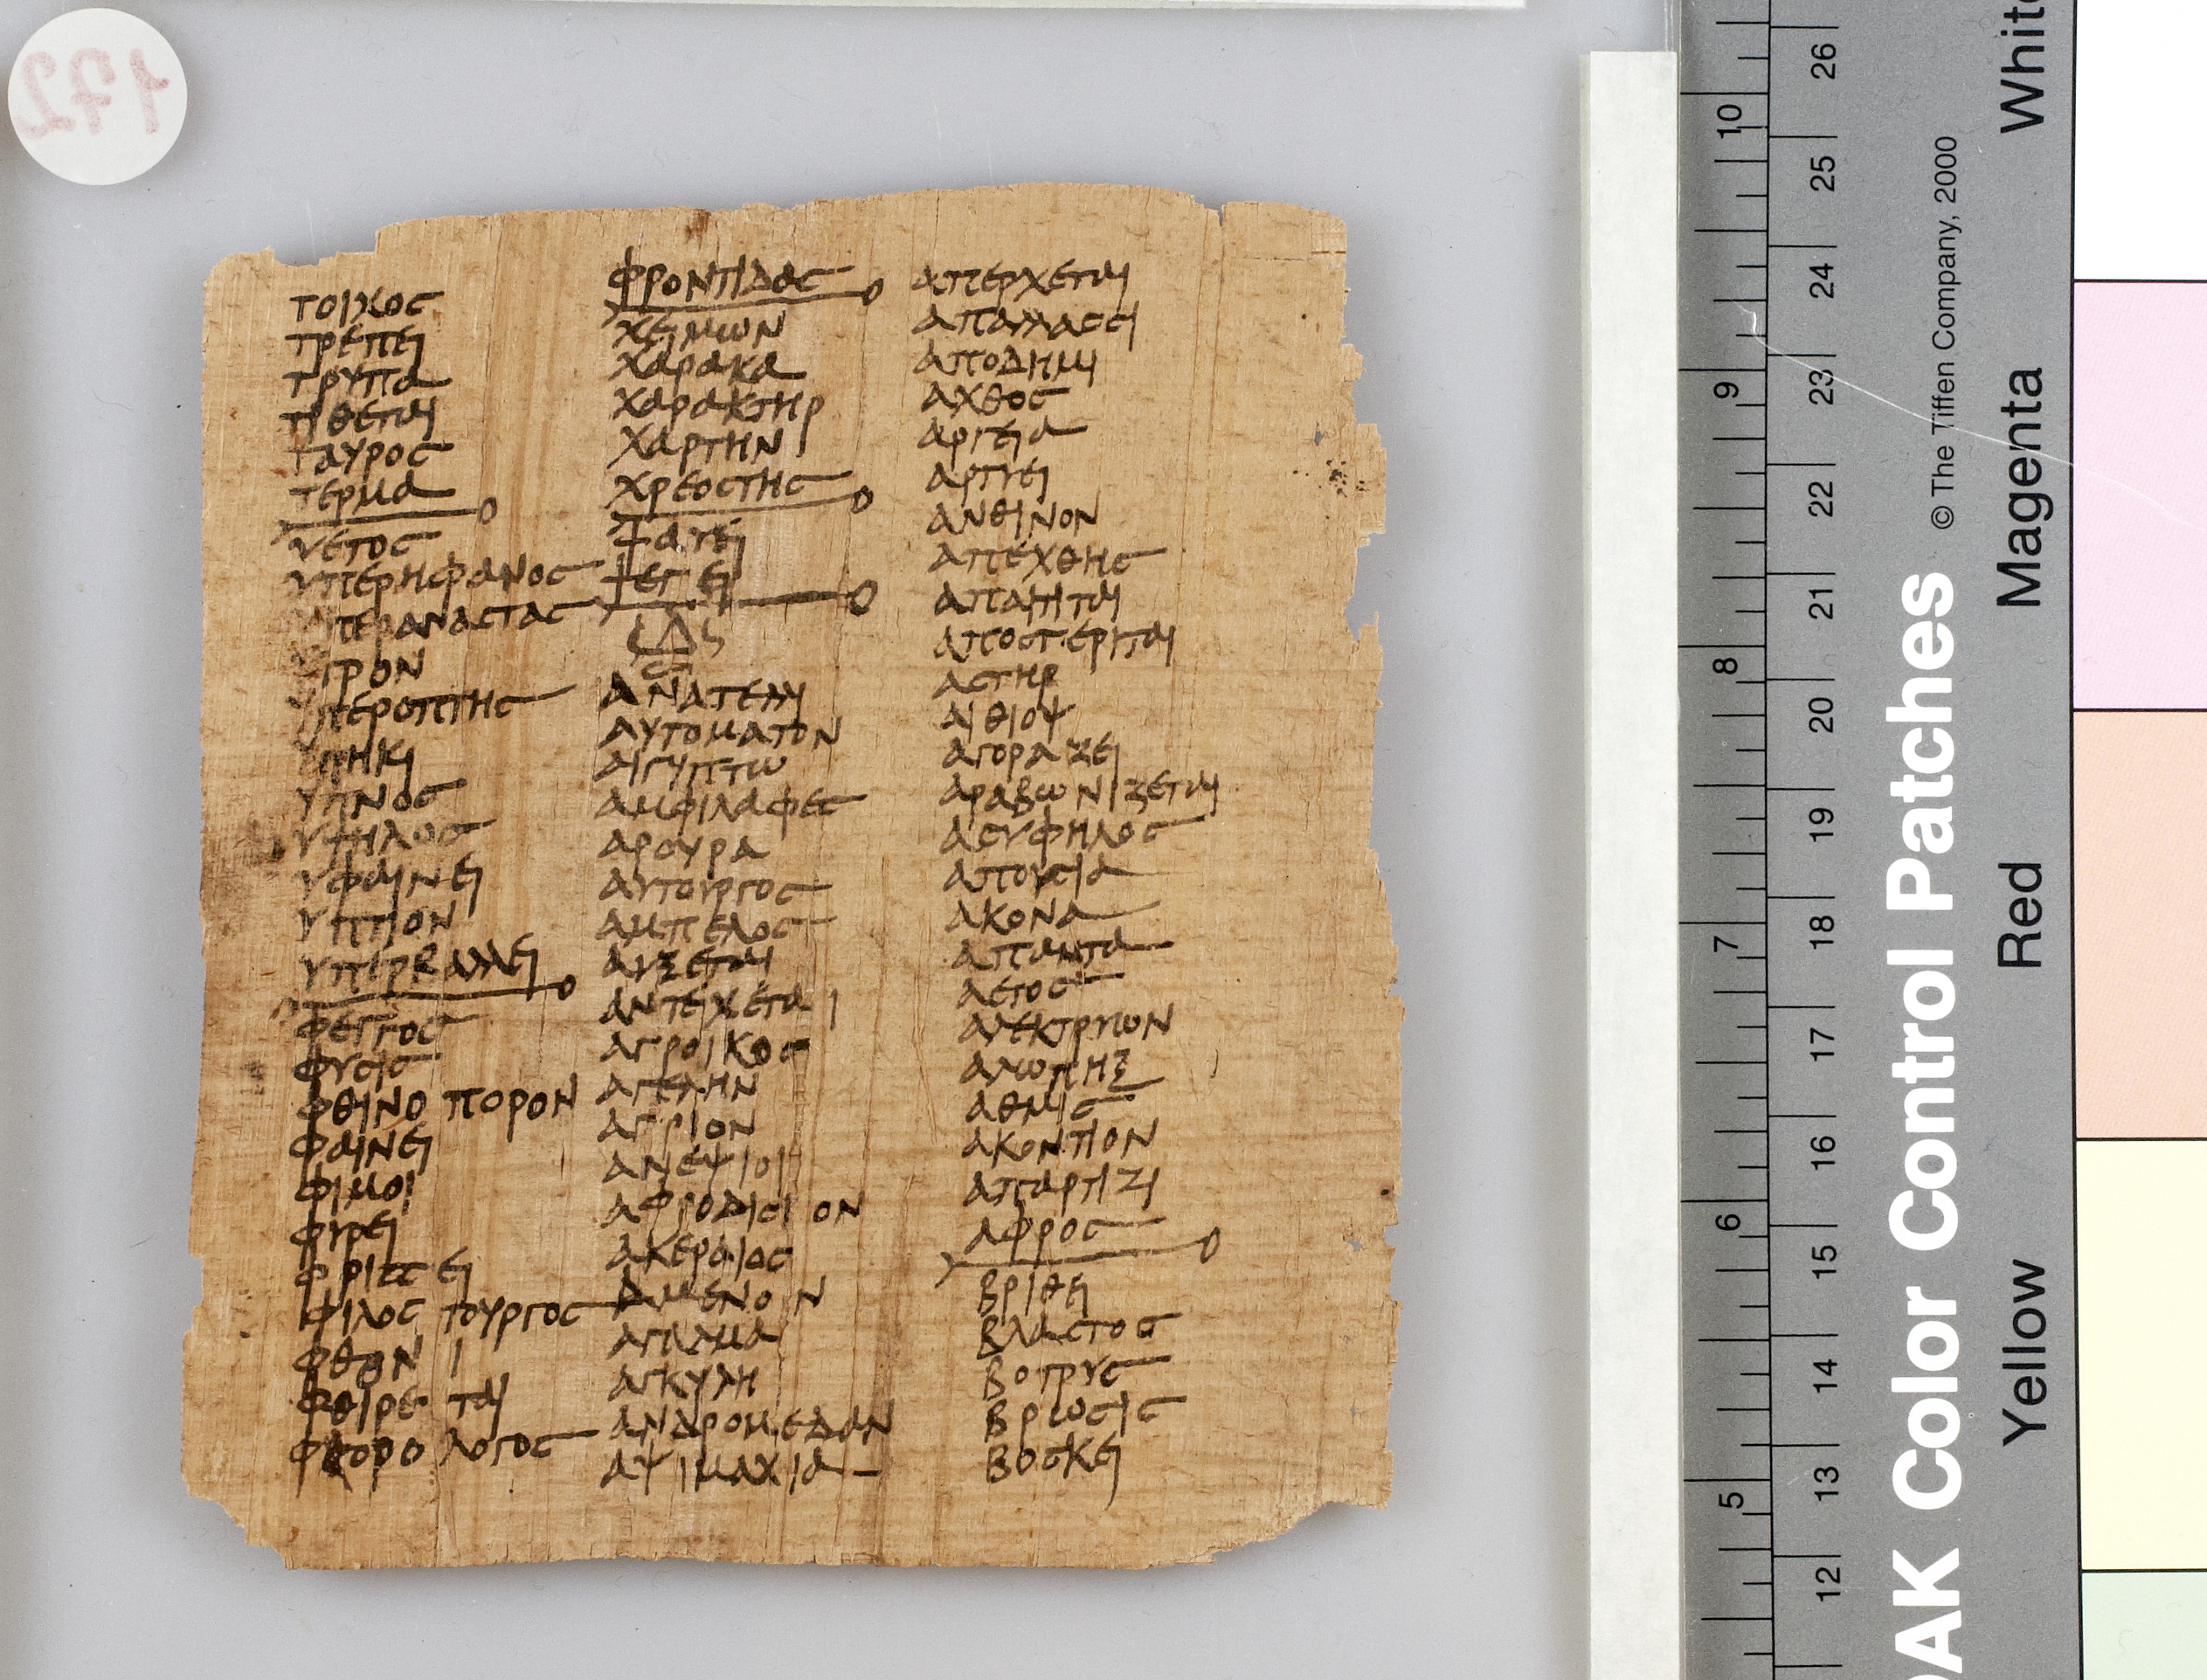 τοιχος
τρεπει
τρυπα
τιθεται
ταυρος
τερμα
υετος
υπερηφανος
υπεραναστας
υγρον
υπεροπτης
υπηκι
υπνος
υψηλος
υφαινει
υπτιον
υπερβαλλει
φεγγος
φυσις
φθινοπορον
φαινει
φιμοι
φυρει
φρισσει
φιλοςτουργος
φθονι
φθιρεται
φορολογος
φροντιδας
χειμων
χαρακα
χαρακτηρ
χαρτην
χρεοστης
ψαυει
ψεγει
ανατελλι
αυτοματον
αιγυπτω
αμφιλαφες
αρουρα
αυτουργος
αμπελος
αυξεται
αντεχεται
αγροικος
αγελην
αγριον
ανεψιοι
αφροδισιον
ακεραιος
αμενοιν
αγαλμα
αγκυλη
ανδρομεδαν
αψιμαχια
απερχεται
απαλλασσι
αποδημι
αχθος
αργεια
αργυει
ανθινον
απεχθης
απαιτιται
αποστεριται
αστηρ
αιθιοψ
αγοραζει
αραβωνιζεται
ασυφηλος
απουσια
ακονα
απαντα
αετος
αλεκτρυων
αλωπηξ
αθμις
ακοντιον
απαρτιζι
αφρος
βριθει
βλαστος
βοτρυς
βρωσις
βοσκει
172
26
25
24
23
22
21
20
19
18
17
16
15
14
13
12
10
9
8
7
6
5
© The Tiffen Company, 2000
AK Color Control Patches
White
Magenta
Red
Yellow